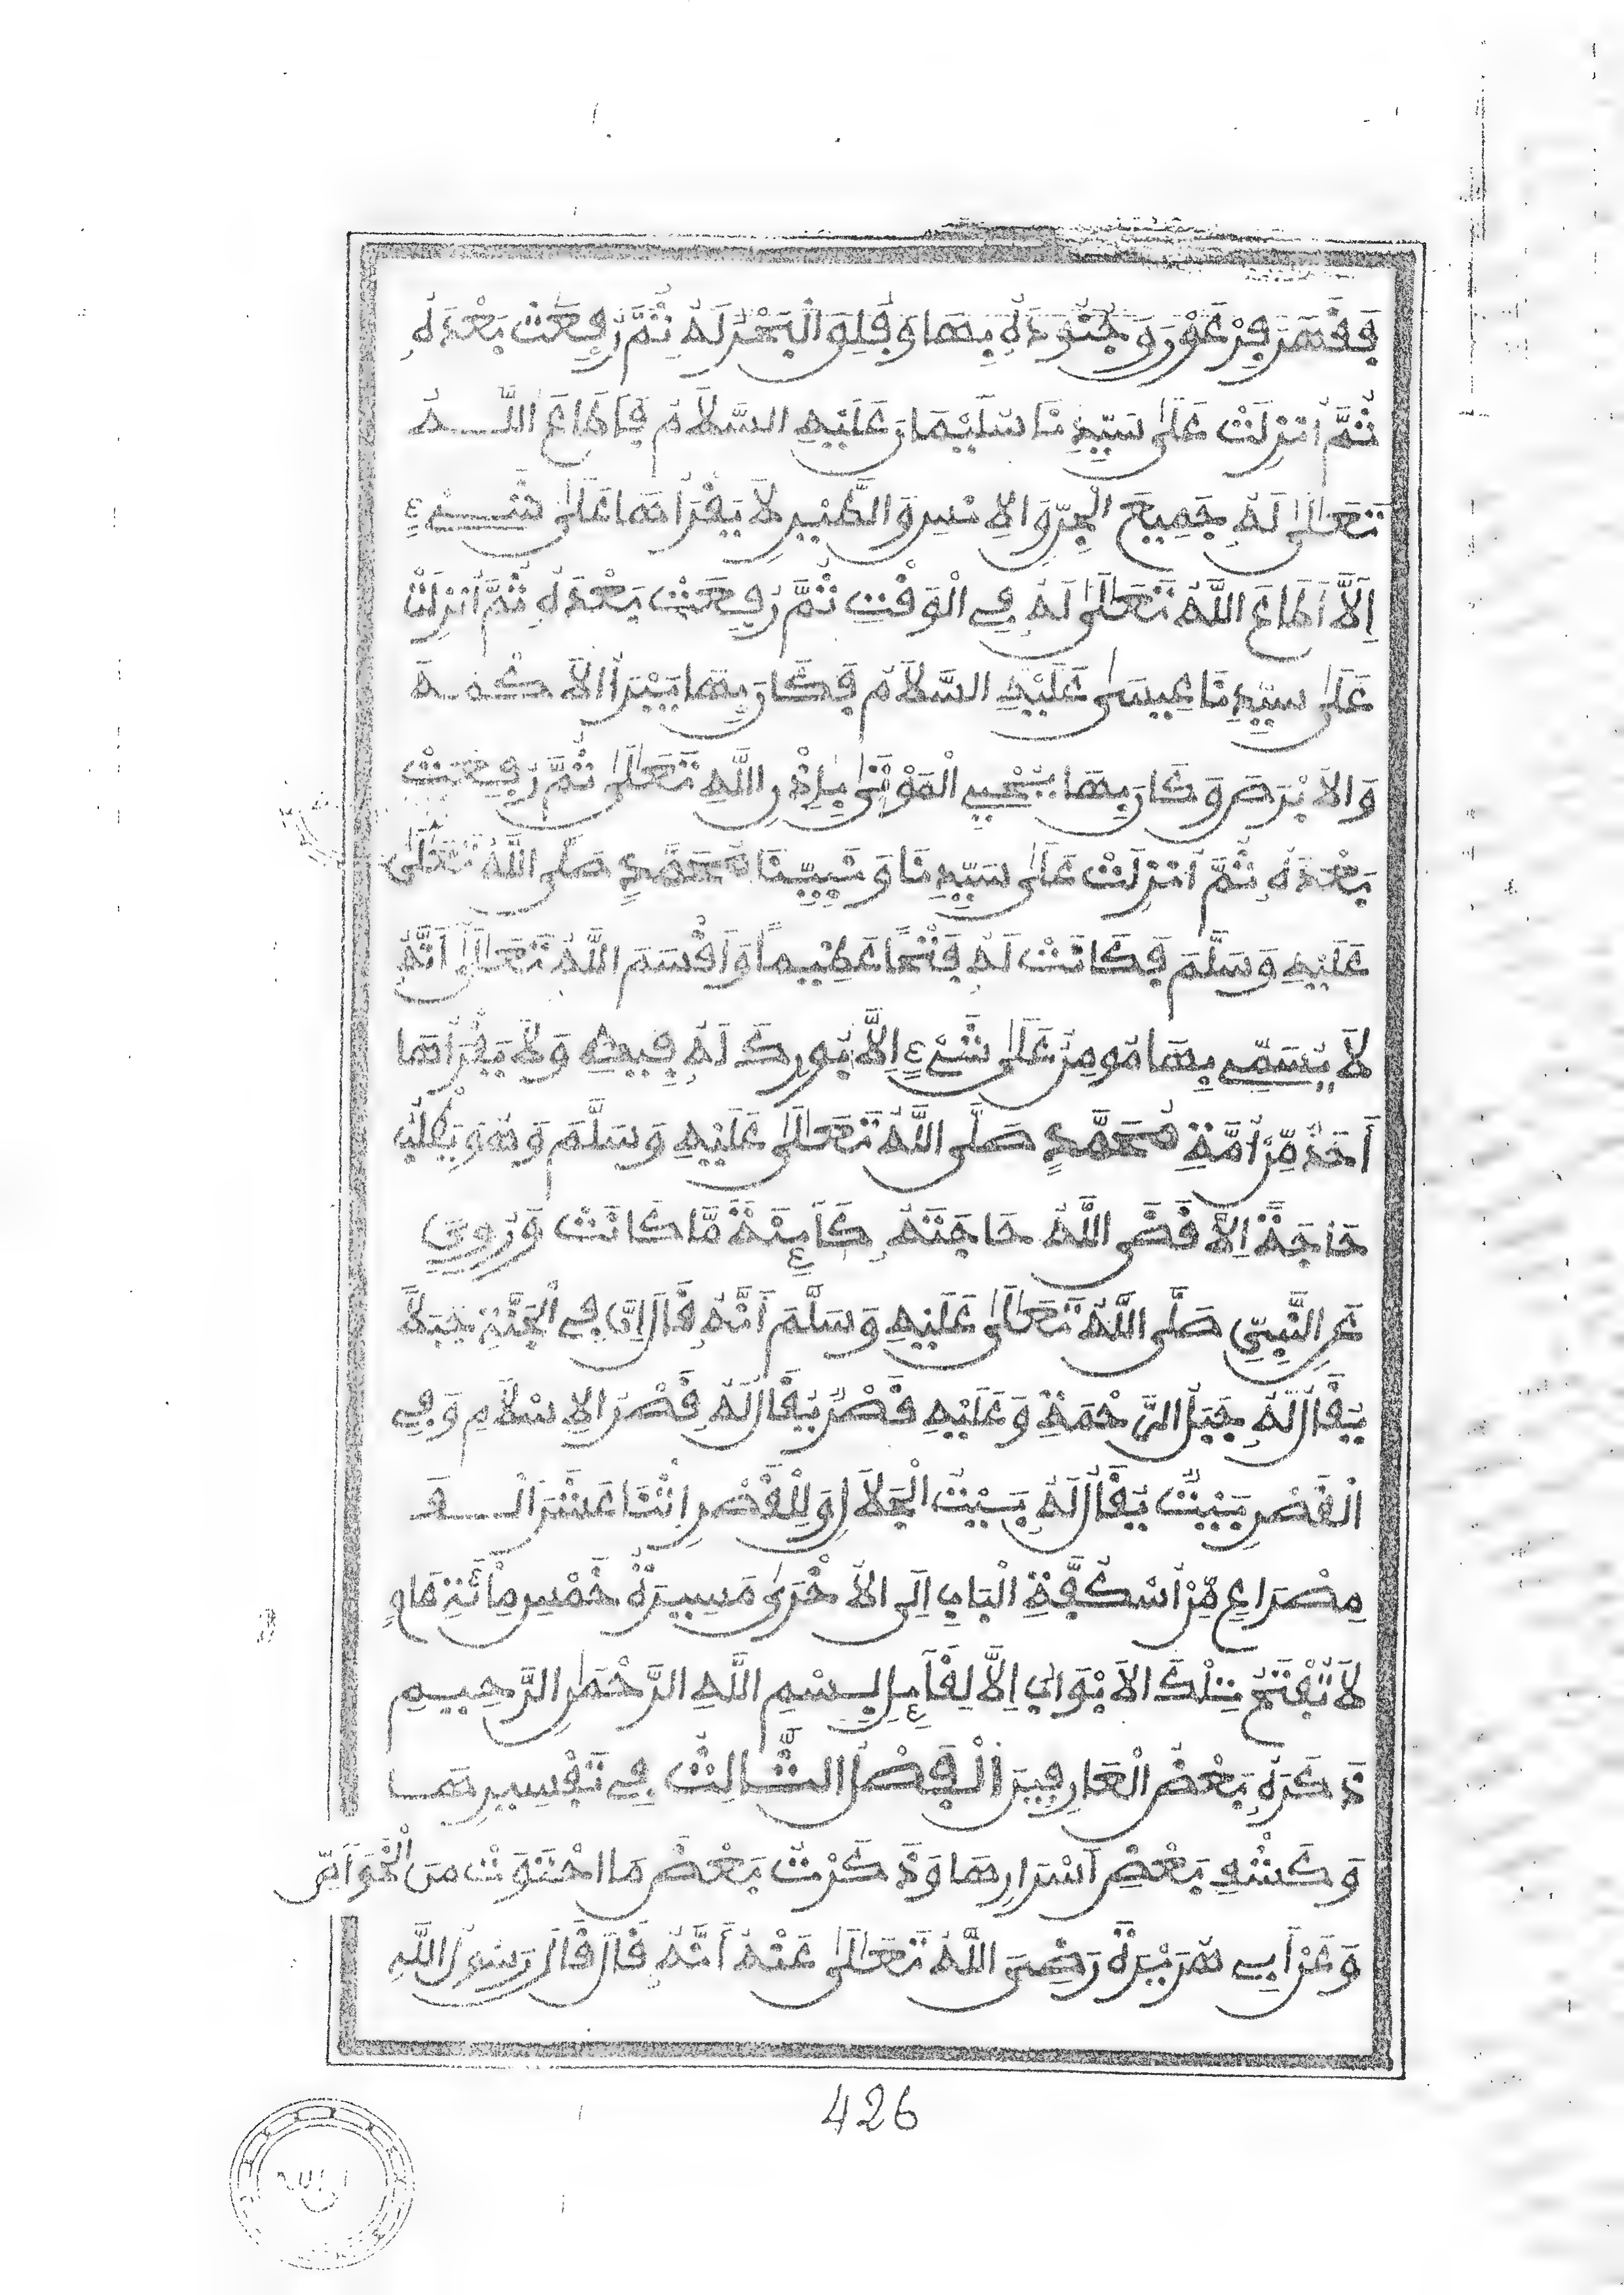 فَقَهَرَ فِرْعَوْنَ وَجُنُودَهُ بِهَا وَفَلَقَ الْبَحْرَ لَهُ ثُمَّ رُفِعَتْ بَعْدَهُ
ثُمَّ أُنْزِلَتْ عَلَى سَيِّدِنَا سُلَيْمَانَ عَلَيْهِ السَّلَامُ فَأَطَاعَ اللَّهُ
تَعَالَى لَهُ جَمِيعَ الْجِنِّ وَالْإِنْسِ وَالطَّيْرِ لَا يَقْرَأُهَا عَلَى شَيْءٍ
إِلَّا أَطَاعَ اللَّهُ تَعَالَى لَهُ فِي الْوَقْتِ ثُمَّ رُفِعَتْ بَعْدَهُ ثُمَّ أُنْزِلَتْ
عَلَى سَيِّدِنَا عِيسَى عَلَيْهِ السَّلَامُ فَكَانَ بِهَا يُبْرِأُ الْأَكْمَهَ
وَالْأَبْرَصَ وَكَانَ بِهَا يُحْيِي الْمَوْتَى بِإِذْنِ اللَّهِ تَعَالَى ثُمَّ رُفِعَتْ
بَعْدَهُ ثُمَّ أُنْزِلَتْ عَلَى سَيِّدِنَا وَنَبِيِّنَا مُحَمَّدٍ صَلَّى اللَّهُ تَعَالَى
عَلَيْهِ وَسَلَّمَ فَكَانَتْ لَهُ فَتْحًا عَظِيمًا وَأَقْسَمَ اللَّهُ تَعَالَى أَنَّهُ
لَا يُسَمِّي بِهَا مُومِنٌ عَلَى شَيْءٍ إِلَّا بُورِكَ لَهُ فِيهِ وَلَا يَقْرَأُهَا
أَحَدٌ مِّنْ أُمَّةِ مُحَمَّدٍ صَلَّى اللَّهُ تَعَالَى عَلَيْهِ وَسَلَّمَ وَهُوَ يَطْلُبُ
حَاجَةً إِلَّا قَضَى اللَّهُ حَاجَتَهُ كَائِنَةً مَّا كَانَتْ وَرُوِيَ
عَنِ النَّبِيِّ صَلَّى اللَّهُ تَعَالَى عَلَيْهِ وَسَلَّمَ أَنَّهُ قَالَ إِنَّ فِي الْجَنَّةِ جَبَلًا
يُقَالُ لَهُ جَبَلُ الرَّحْمَةِ وَعَلَيْهِ قَصْرٌ يُقَالُ لَهُ قَصْرُ الْإِسْلَامِ وَفِي
الْقَصْرِ بَيْتٌ يُقَالُ لَهُ بَيْتُ الْجَلَالِ وَلِلْقَصْرِ اثْنَا عَشَرَ أَلْفَ
مِصْرَاعٍ مِّنْ أُسْكُفَّةِ الْبَابِ إِلَى الْأُخْرَى مَسِيرَةُ خَمْسِ مِائَةِ عَامٍ
لَا تُفْتَحُ تِلْكَ الْأَبْوَابُ إِلَّا لِقَائِلِ بِسْمِ اللَّهِ الرَّحْمَنِ الرَّحِيمِ
ذَكَرَهُ بَعْضُ الْعَارِفِينَ الْفَصْلُ الثَّالِثُ فِي تَفْسِيرِهَا
وَكَشْفِ بَعْضِ أَسْرَارِهَا وَذَكَرْتُ بَعْضَ مَا احْتَوَتْ مِنَ الْخَوَاصِّ
وَعَنْ أَبِي هُرَيْرَةَ رَضِيَ اللَّهُ تَعَالَى عَنْهُ أَنَّهُ قَالَ قَالَ رَسُولُ اللَّهِ
426